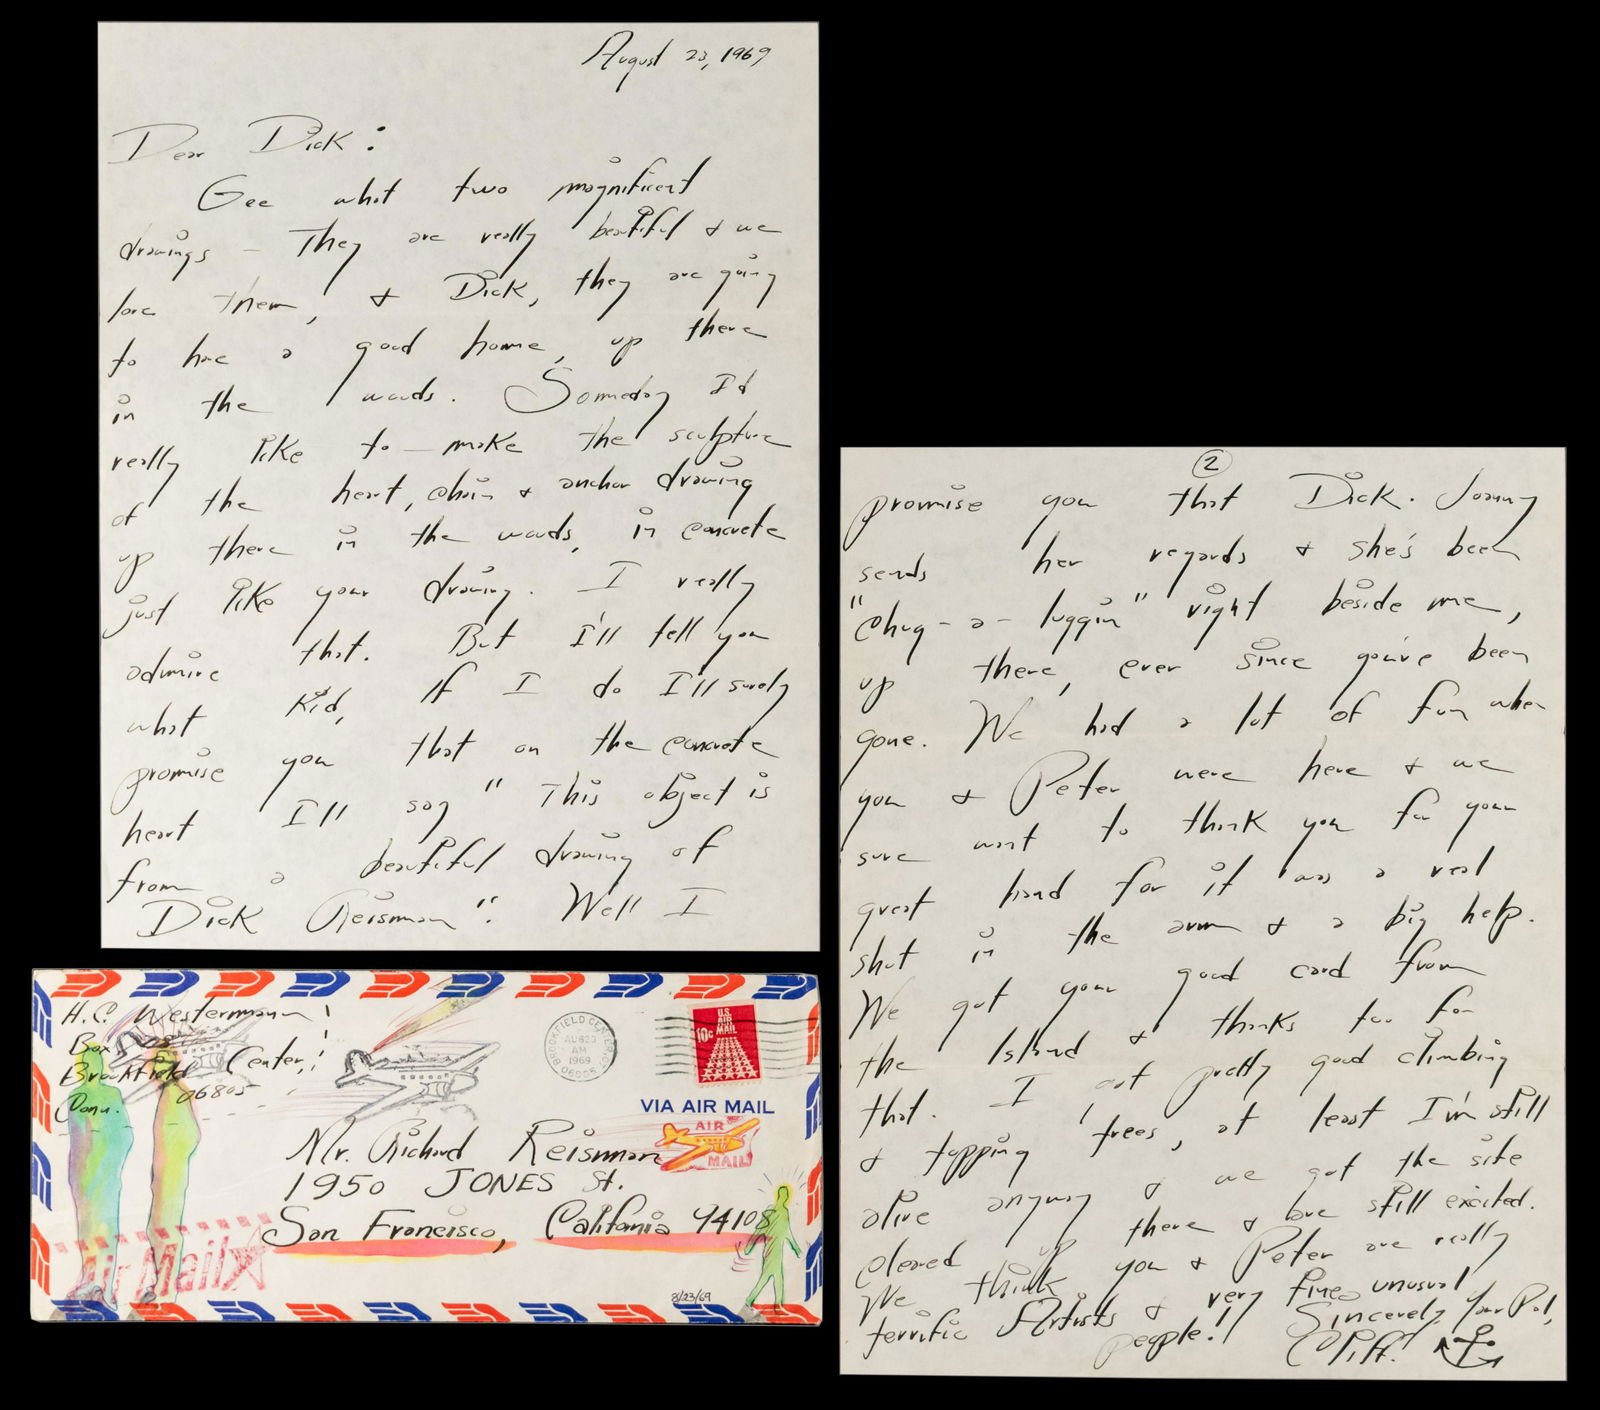 August 23, 1969
Dear Dick:
Gee what two magnificent
drawings - They are really beautiful & we
love them, & Dick, they are going
to have a good home, up there
in the woods. Someday I'd
really like to make the sculpture
of the heart, chain & anchor drawing
up there in the woods, in concrete
just like your drawing. I really
admire that. But I'll tell you
what Kid, if I do I'll surely
promise you that on the concrete
heart I'll say "This object is
from a beautiful drawing of
Dick Reisman". Well I
2
promise you that Dick. Joanny
sends her regards & she's been
"chug-a-luggin" right beside me,
up there, ever since you've been
gone. We had a lot of fun when
you & Peter were here & we
sure want to thank you for your
great hand for it was a real
shot in the arm & a big help.
We got your good card from
the Island & thanks too for
that. I got pretty good climbing
& topping trees, at least I'm still
alive anyway & we got the site
cleared up there & are still excited.
We think you & Peter are really
terrific Artists & very fine, unusual
people! Sincerely, Your Pal,
Cliff!
H.C. Westermann
Box
Brookfield Center,
Conn. 06805
BROOKFIELD CENTER
AUG 23
AM
1969
06805
U.S.
AIR
MAIL
10c
VIA AIR MAIL
AIR
MAIL
Mr. Richard Reisman
1950 JONES St.
San Francisco, California 94108
Air Mail
8/23/69